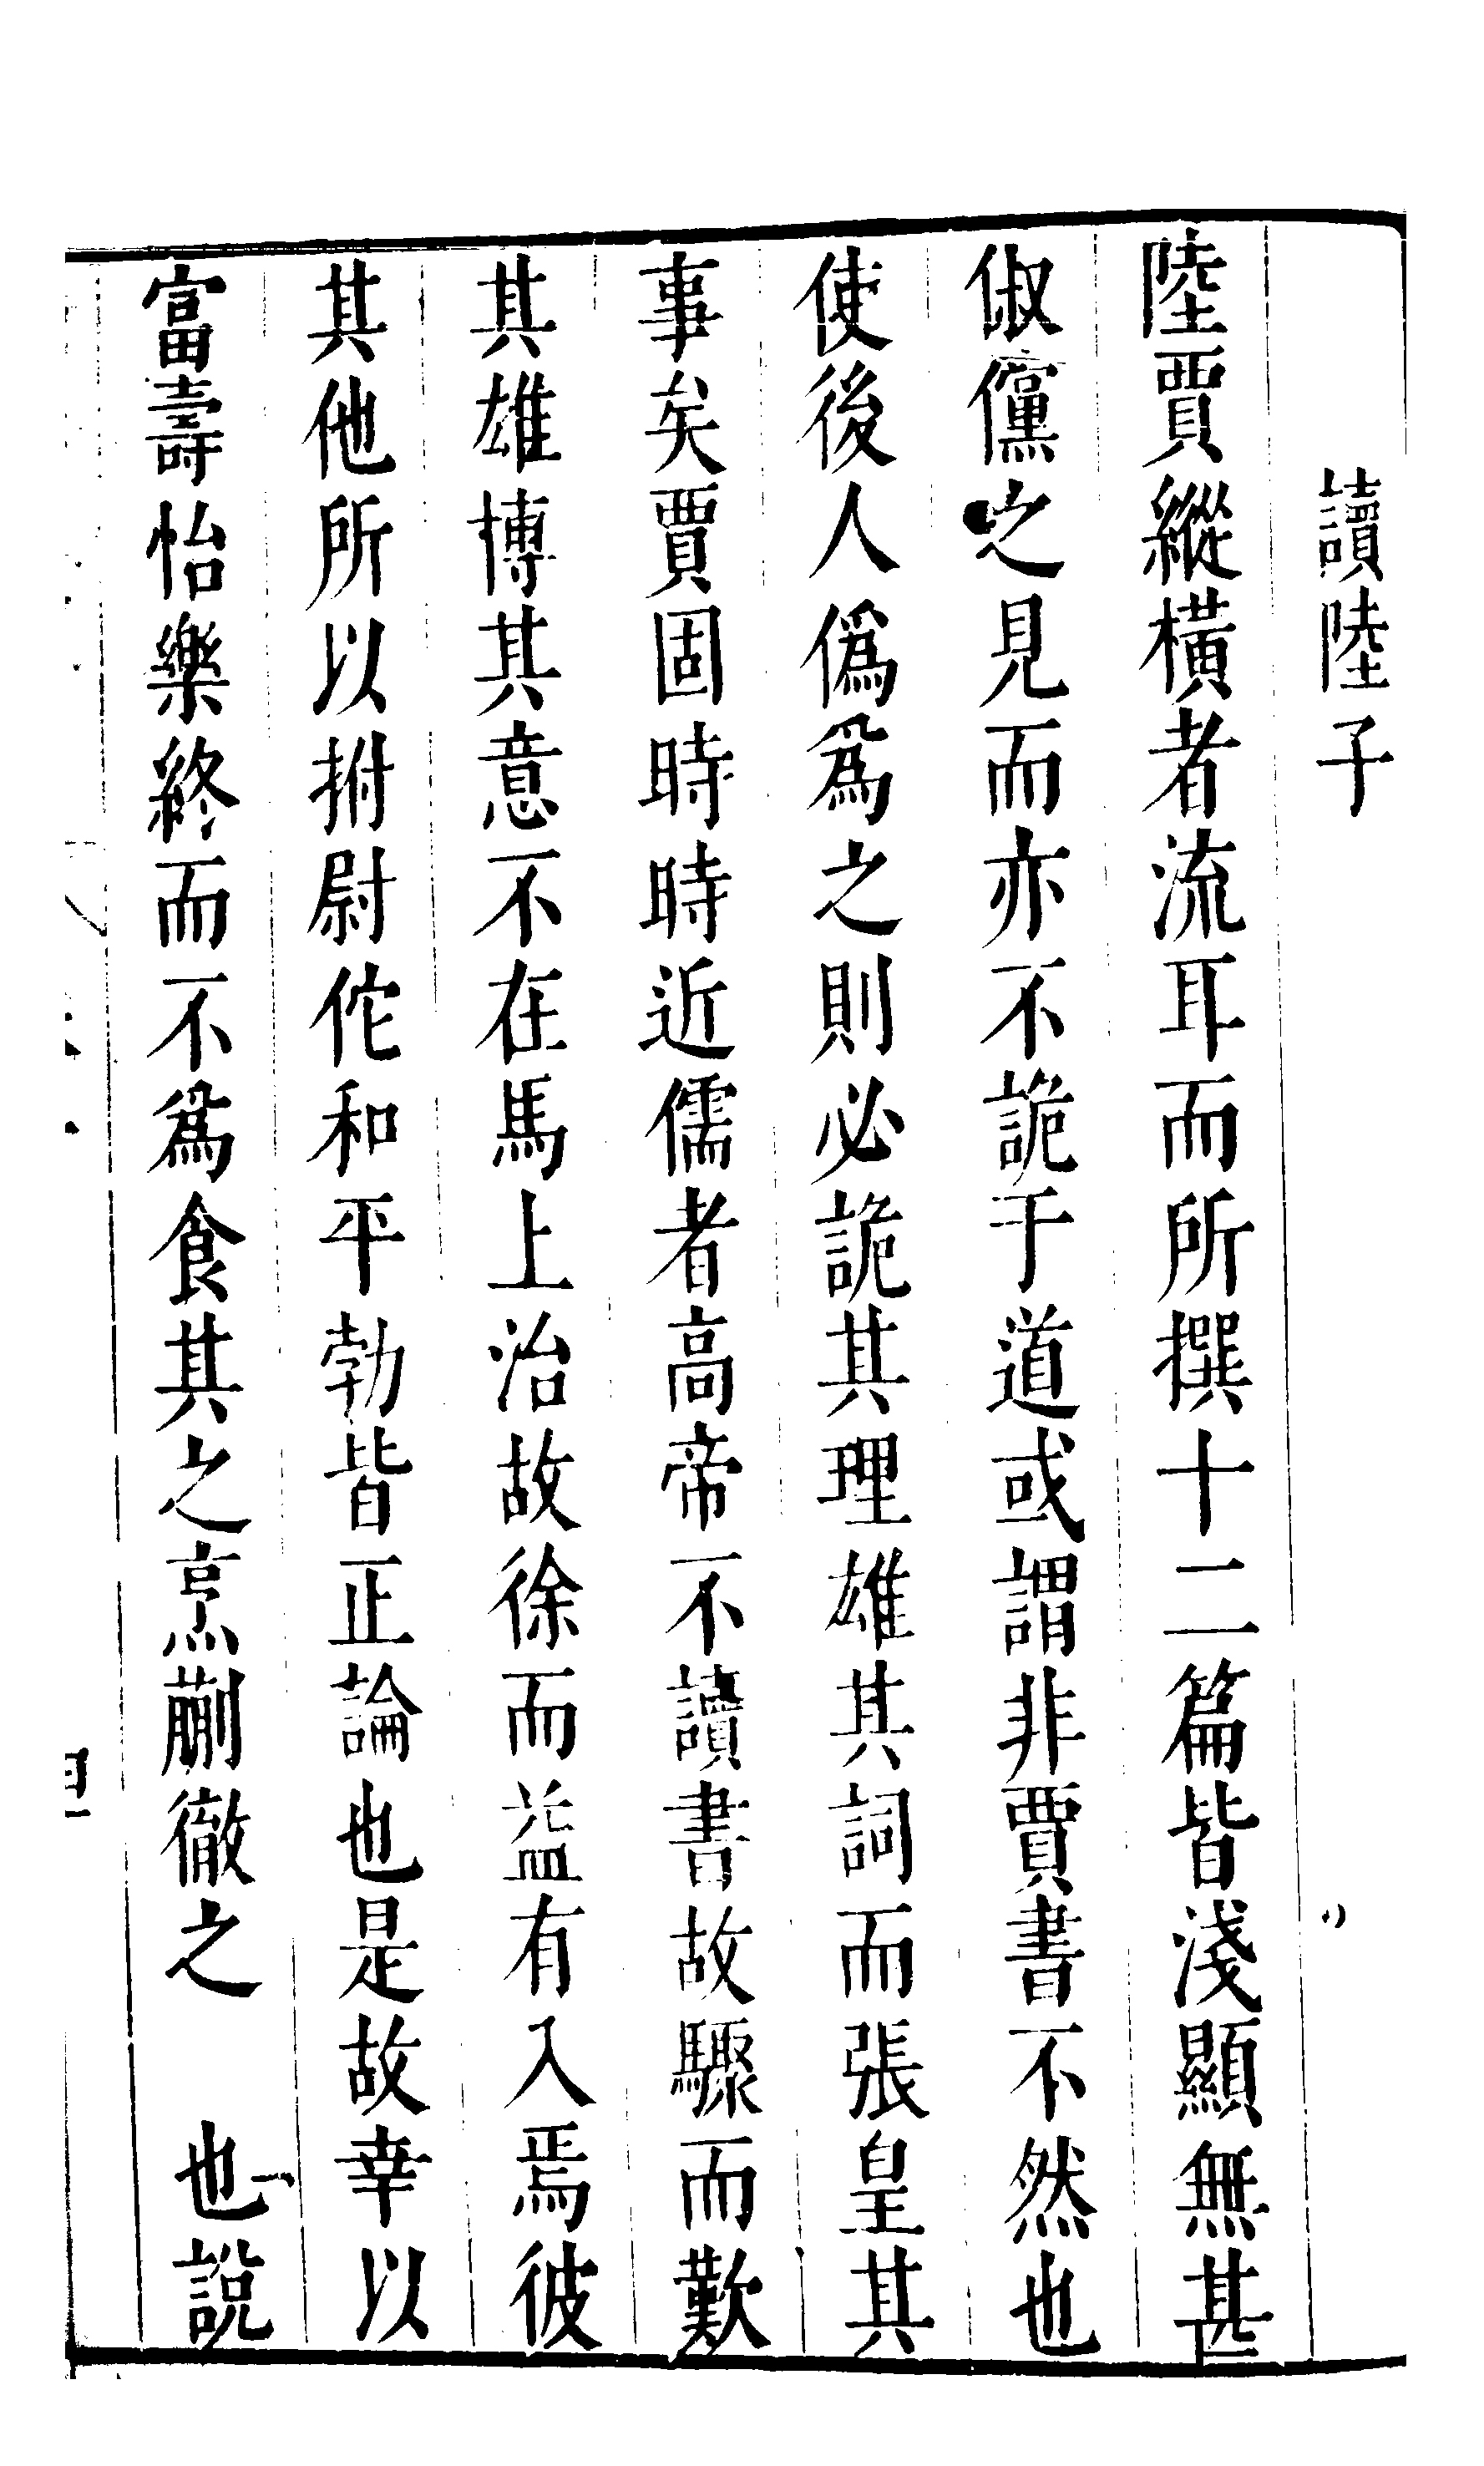 讀陸子
陸賈縱橫者流耳而所撰十二篇皆淺顯無甚
俶儻之見而亦不詭于道或謂非賈書不然也
使後人僞爲之則必詭其理雄其詞而張皇其
事矣賈固時時近儒者高帝不讀書故驟而歎
其雄博其意不在馬上治故徐而益有入焉彼
其他所以拊尉佗和平勃皆正論也是故幸以
富壽怡樂終而不爲食其之烹蒯徹之 也說